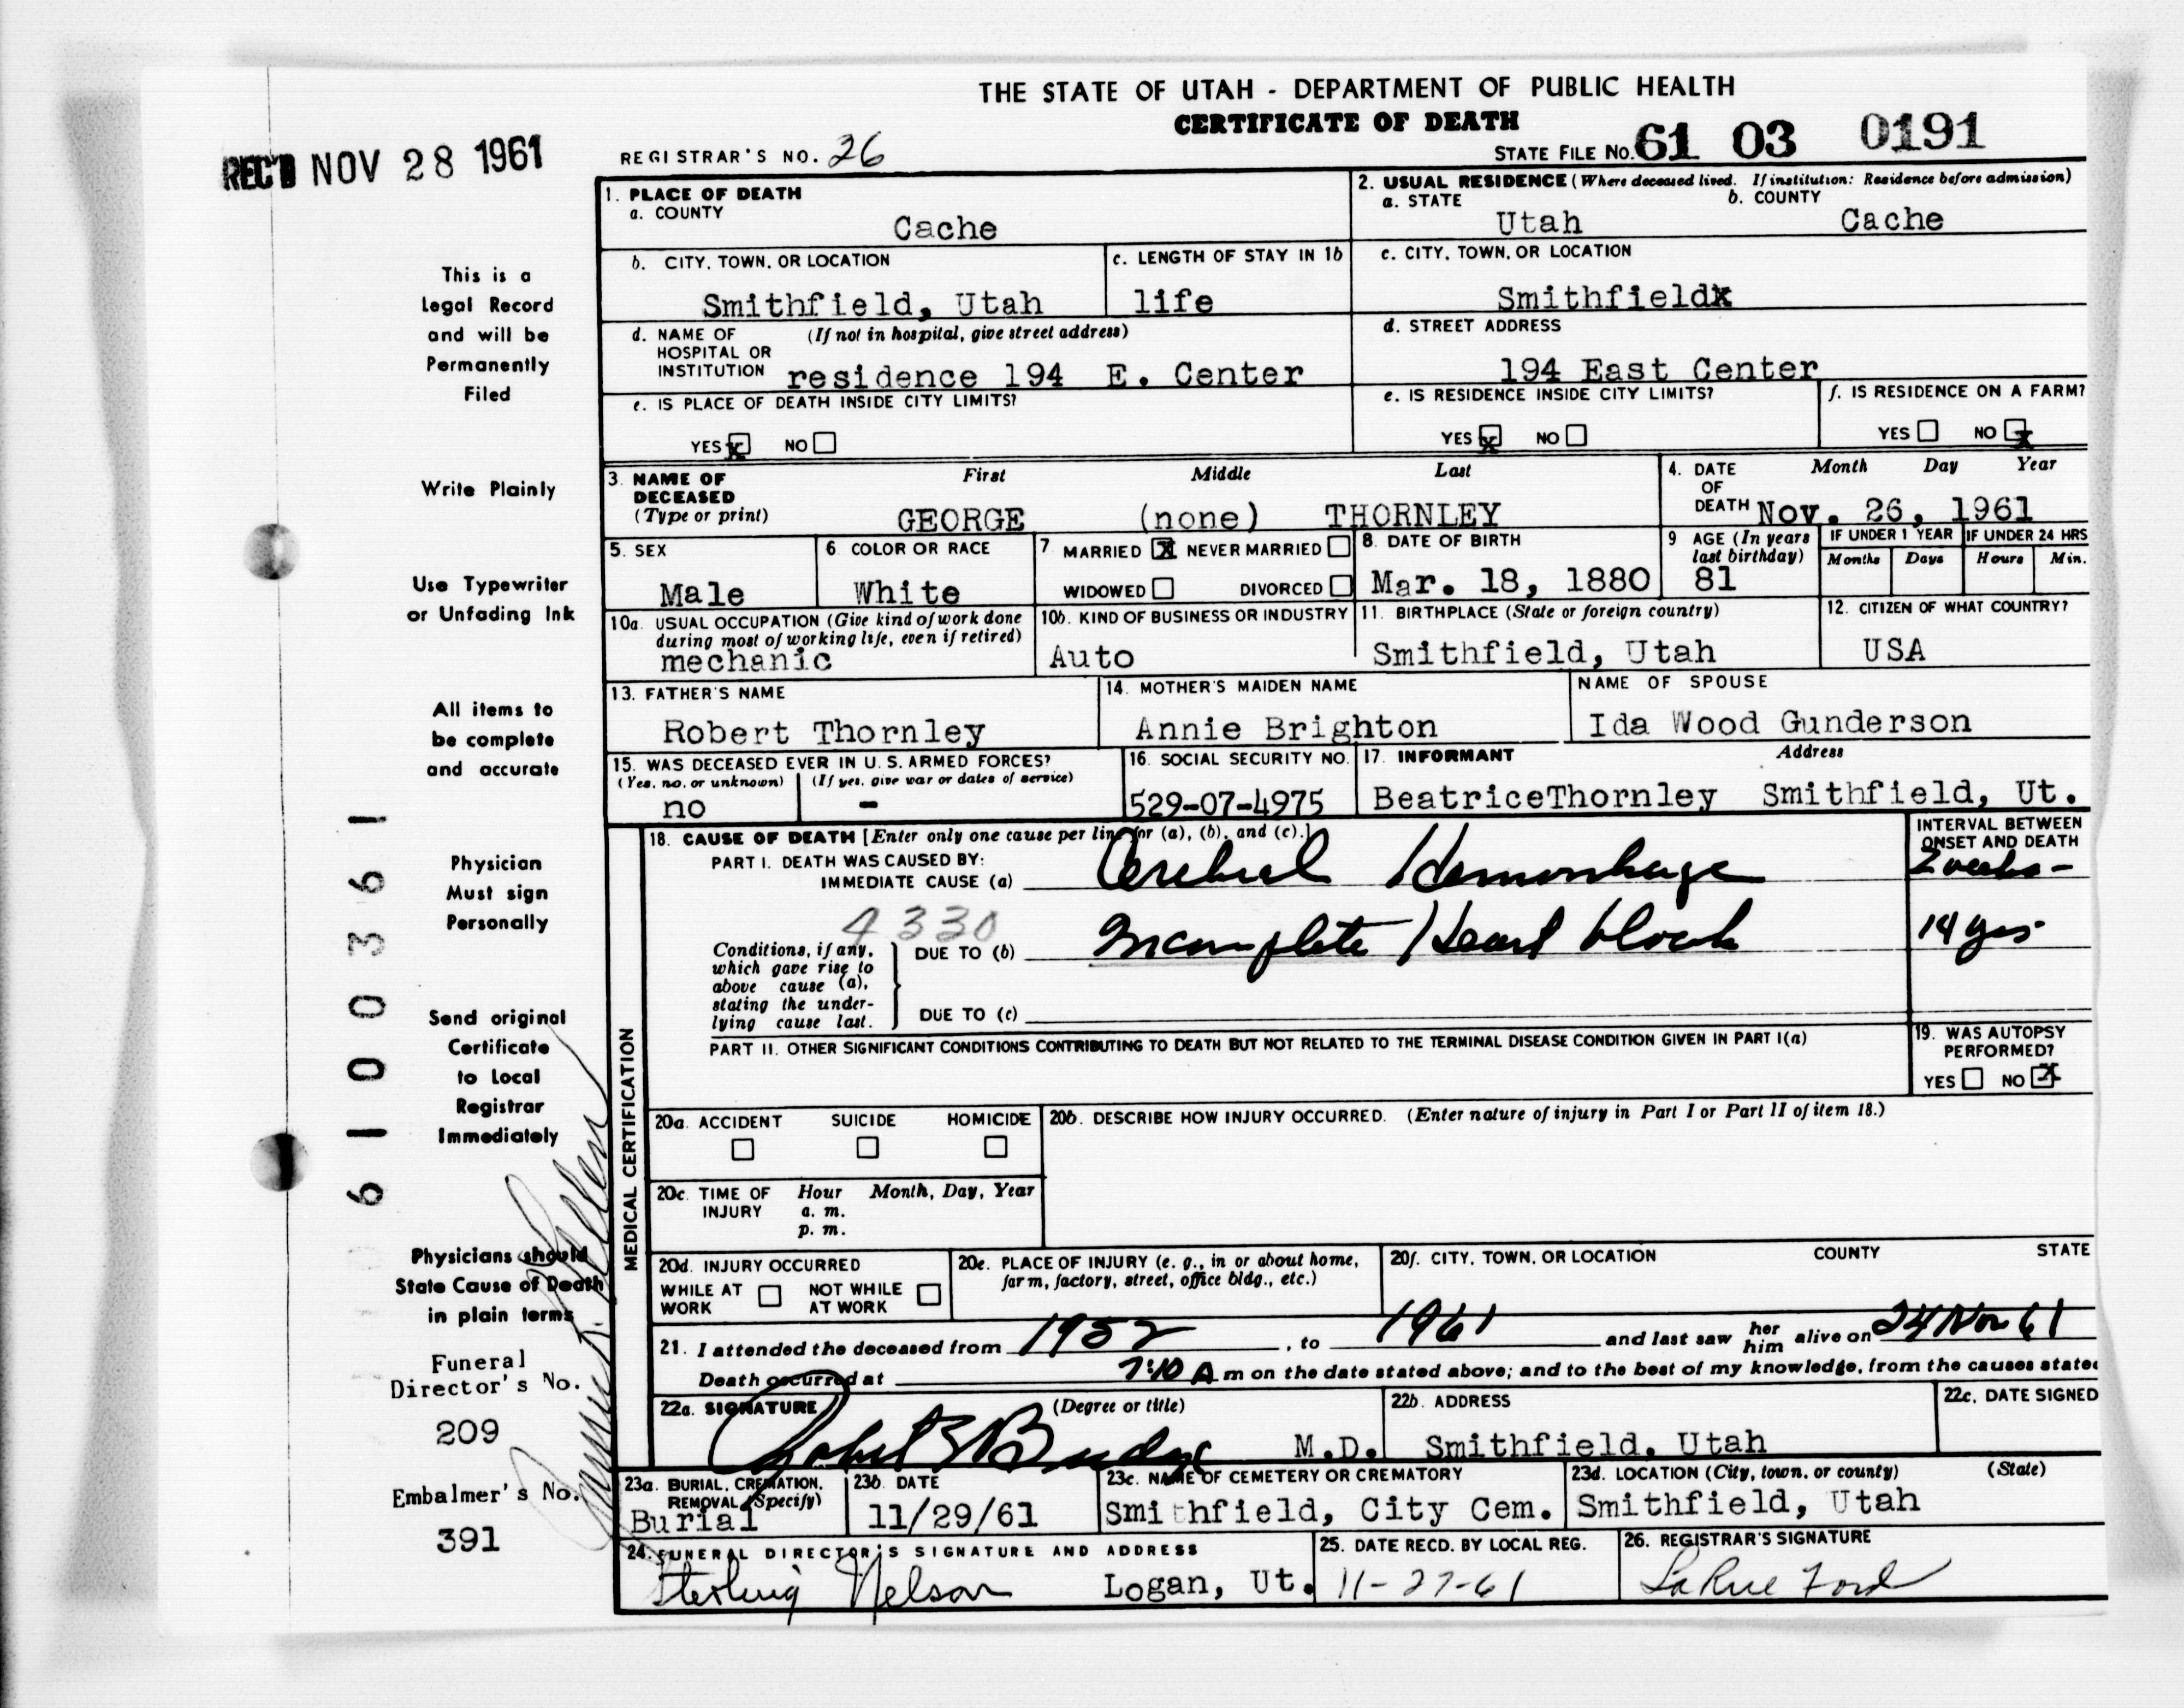 THE STATE OF UTAH - DEPARTMENT OF PUBLIC HEALTH
CERTIFICATE OF DEATH
REC'D NOV 28 1961
REGISTRAR'S NO. 26
STATE FILE NO. 61 03 0191
1. PLACE OF DEATH
a. COUNTY
Cache
2. USUAL RESIDENCE (Where deceased lived. If institution: Residence before admission)
a. STATE b. COUNTY
Utah Cache
b. CITY, TOWN, OR LOCATION
Smithfield, Utah
c. LENGTH OF STAY IN 1b
life
c. CITY, TOWN, OR LOCATION
Smithfieldx
d. NAME OF (If not in hospital, give street address)
HOSPITAL OR
INSTITUTION residence 194 E. Center
d. STREET ADDRESS
194 East Center
e. IS PLACE OF DEATH INSIDE CITY LIMITS?
YES x NO
e. IS RESIDENCE INSIDE CITY LIMITS?
YES x NO
f. IS RESIDENCE ON A FARM?
YES NO x
3. NAME OF DECEASED (Type or print)
First Middle Last
GEORGE (none) THORNLEY
4. DATE OF DEATH Month Day Year
Nov. 26, 1961
5. SEX
Male
6. COLOR OR RACE
White
7. MARRIED X NEVER MARRIED
WIDOWED DIVORCED
8. DATE OF BIRTH
Mar. 18, 1880
9. AGE (In years last birthday)
81
IF UNDER 1 YEAR IF UNDER 24 HRS
Months Days Hours Min.
10a. USUAL OCCUPATION (Give kind of work done
during most of working life, even if retired)
mechanic
10b. KIND OF BUSINESS OR INDUSTRY
Auto
11. BIRTHPLACE (State or foreign country)
Smithfield, Utah
12. CITIZEN OF WHAT COUNTRY?
USA
13. FATHER'S NAME
Robert Thornley
14. MOTHER'S MAIDEN NAME
Annie Brighton
NAME OF SPOUSE
Ida Wood Gunderson
15. WAS DECEASED EVER IN U.S. ARMED FORCES?
(Yes, no, or unknown) (If yes, give war or dates of service)
no -
16. SOCIAL SECURITY NO.
529-07-4975
17. INFORMANT Address
BeatriceThornley Smithfield, Ut.
MEDICAL CERTIFICATION
18. CAUSE OF DEATH [Enter only one cause per line for (a), (b), and (c).]
PART I. DEATH WAS CAUSED BY:
IMMEDIATE CAUSE (a) Cerebral Hemorrhage
INTERVAL BETWEEN
ONSET AND DEATH
2 weeks-
4330
Conditions, if any,
which gave rise to
above cause (a),
stating the under-
lying cause last.
DUE TO (b) Incomplete Heart block
14 yrs
DUE TO (c)
PART II. OTHER SIGNIFICANT CONDITIONS CONTRIBUTING TO DEATH BUT NOT RELATED TO THE TERMINAL DISEASE CONDITION GIVEN IN PART I(a)
19. WAS AUTOPSY
PERFORMED?
YES NO X
20a. ACCIDENT SUICIDE HOMICIDE
20b. DESCRIBE HOW INJURY OCCURRED. (Enter nature of injury in Part I or Part II of item 18.)
20c. TIME OF INJURY Hour Month, Day, Year
a. m.
p. m.
20d. INJURY OCCURRED
WHILE AT WORK NOT WHILE AT WORK
20e. PLACE OF INJURY (e. g., in or about home,
farm, factory, street, office bldg., etc.)
20f. CITY, TOWN, OR LOCATION COUNTY STATE
21. I attended the deceased from 1952, to 1961 and last saw her him alive on 24 Nov 61
Death occurred at 7:10 A m on the date stated above; and to the best of my knowledge, from the causes stated
22a. SIGNATURE (Degree or title)
Robert S Budge M.D.
22b. ADDRESS
Smithfield, Utah
22c. DATE SIGNED
23a. BURIAL, CREMATION,
REMOVAL (Specify)
Burial
23b. DATE
11/29/61
23c. NAME OF CEMETERY OR CREMATORY
Smithfield, City Cem.
23d. LOCATION (City, town, or county) (State)
Smithfield, Utah
24. FUNERAL DIRECTOR'S SIGNATURE AND ADDRESS
Sterling Nelson Logan, Ut.
25. DATE RECD. BY LOCAL REG.
11-27-61
26. REGISTRAR'S SIGNATURE
LaRue Ford
This is a
Legal Record
and will be
Permanently
Filed
Write Plainly
Use Typewriter
or Unfading Ink
All items to
be complete
and accurate
Physician
Must sign
Personally
Send original
Certificate
to Local
Registrar
Immediately
Physicians should
State Cause of Death
in plain terms
Funeral
Director's No.
209
Embalmer's No.
391
6100361